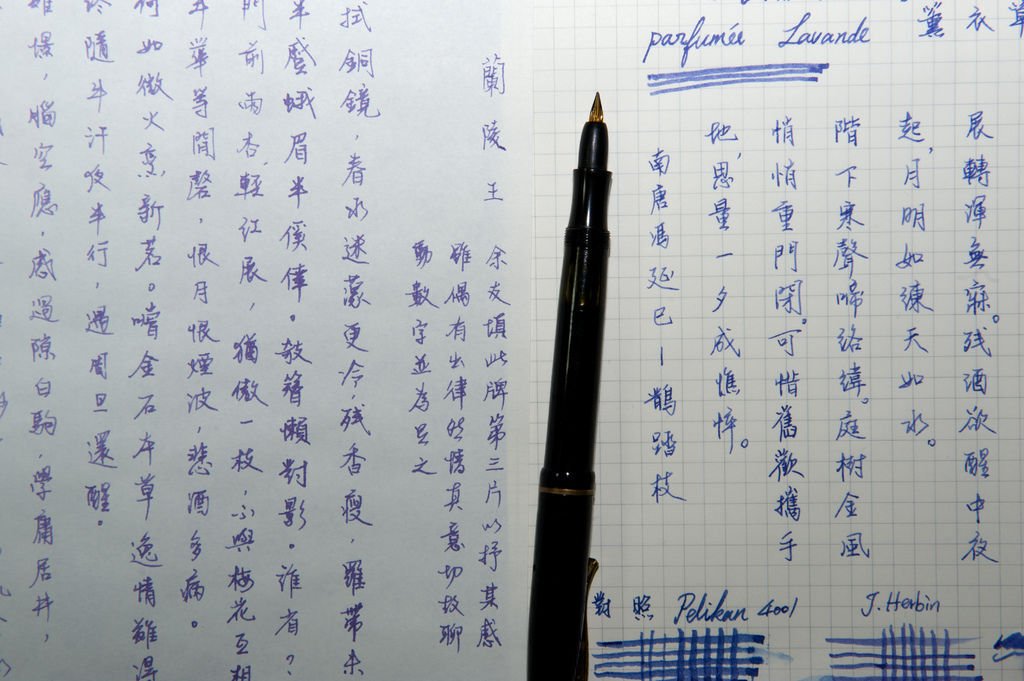 parfumée Lavande 薰衣草
展轉渾無寐。残酒欲醒中夜
起，月明如練天如水。
階下寒聲啼络緯。庭樹金風
悄悄重門閉。可惜舊歡攜手
地，思量一夕成憔悴。
南唐馮延巳－鵲踏枝
對照 Pelikan 4001
J. Herbin
蘭陵王
余友填此牌第三片以抒某感
雖偶有出律然情真意切故聊
動數字並為足之
拭銅鏡，春水迷濛更冷，残香瘦，羅帶未
蛾眉半傒倖。敧簪懶對影。誰省？
門前雨杏，輕红展，猶傲一枝，不與梅花互相
華等閒罄，恨月恨煙波，悲酒多病。
何如微火烹新茗。嚐金石本草逸情難得
隨斗汗夜半行，遇周旦還醒。
腦空應，感過隙白駒，學庸居井，